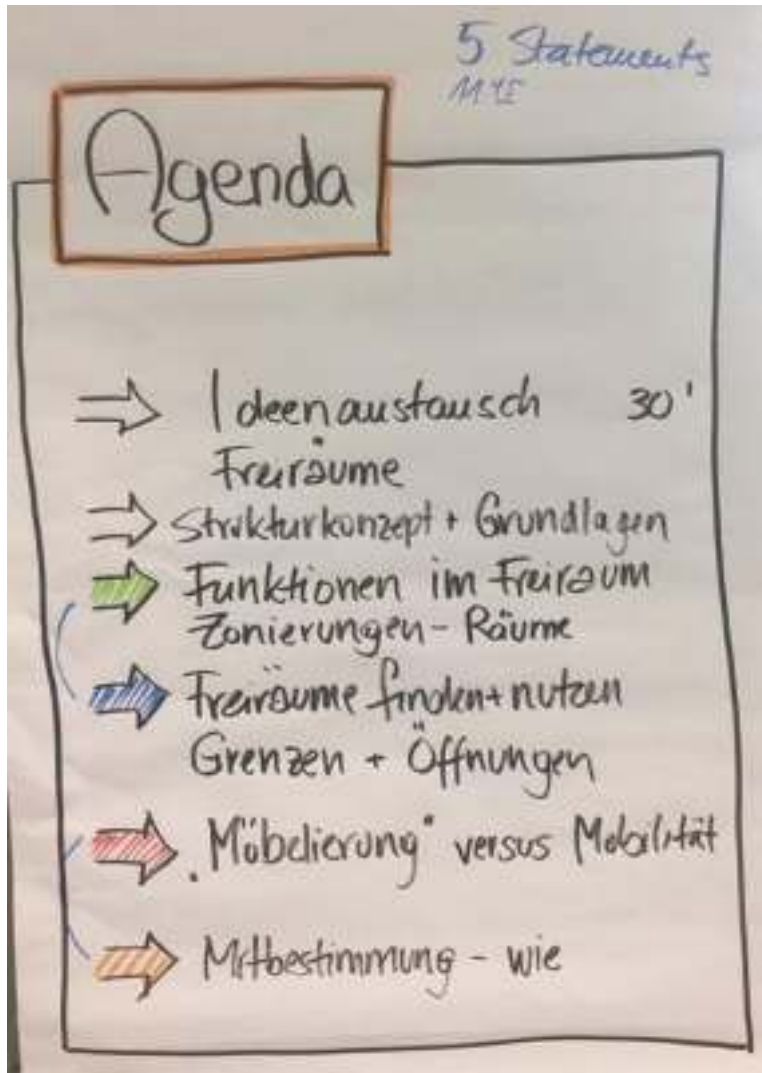 5 Statements
Agenda
Ideenaustausch 30'
Freiräume
Strukturkonzept + Grundlagen
Funktionen im Freiraum
Zonierungen - Räume
Freiräume finden + nutzen
Grenzen + Öffnungen
„Möbelierung“ versus Mobilität
Mitbestimmung - wie